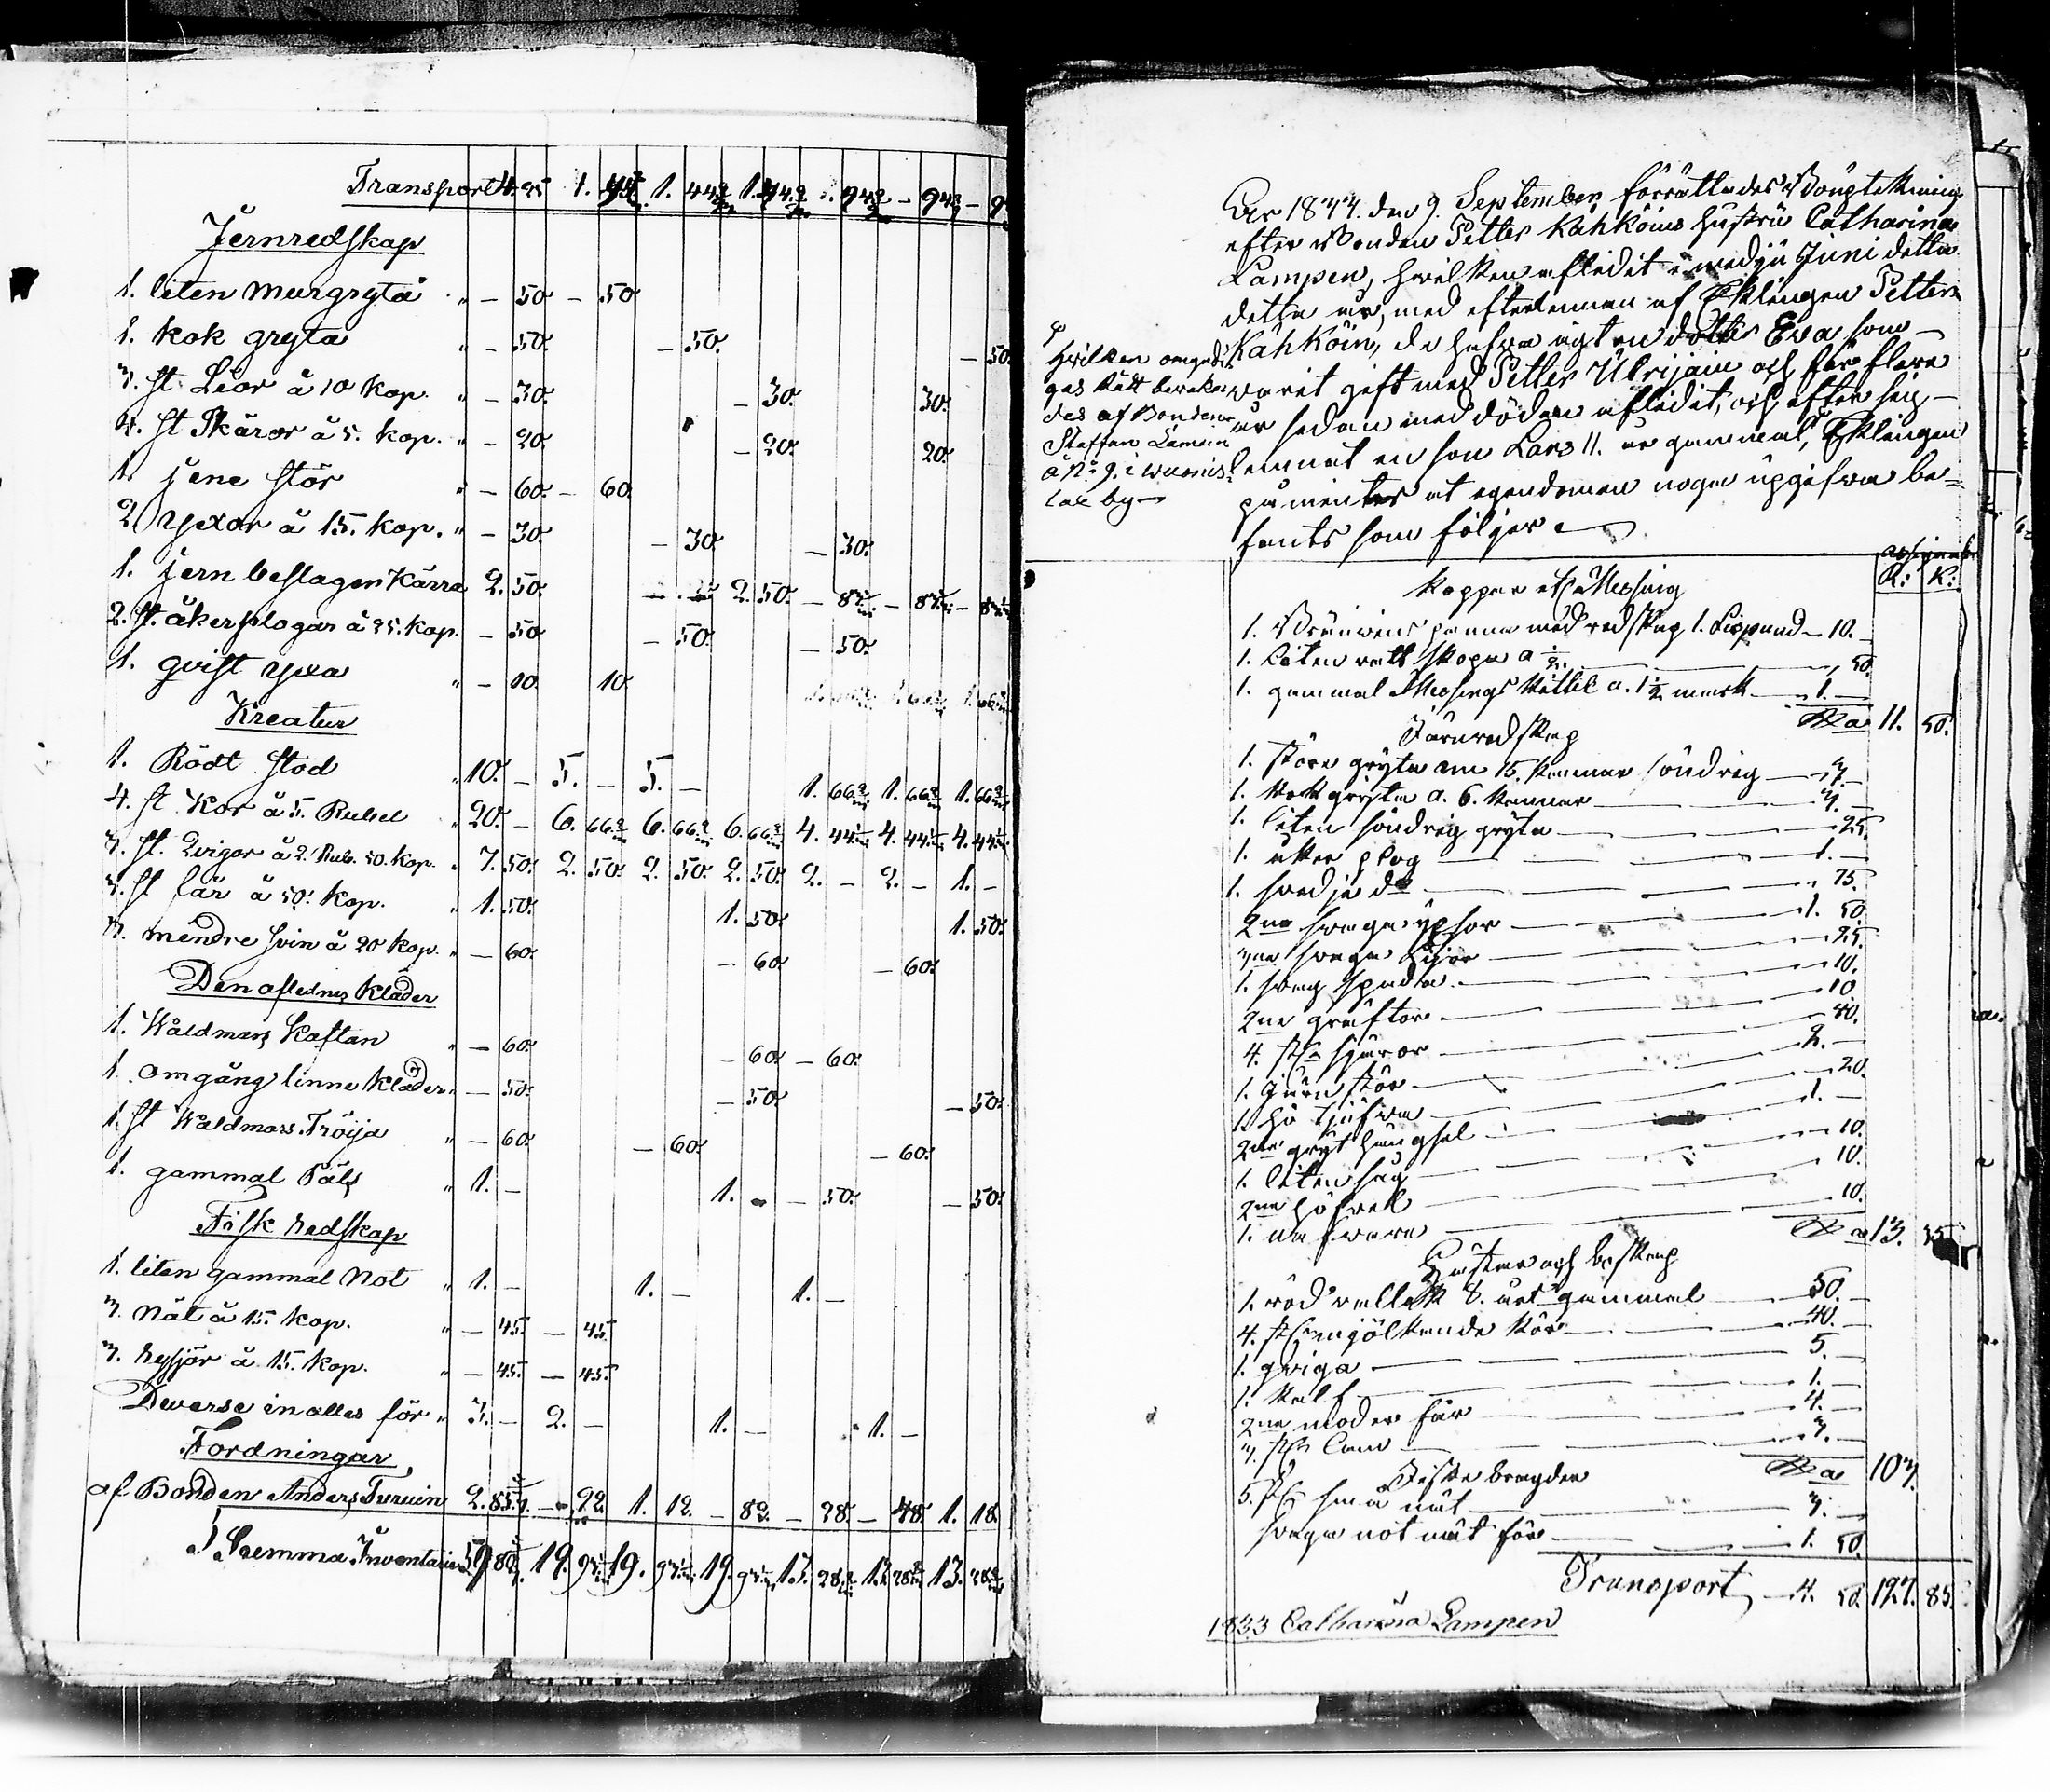 Transport 4. 25 1. 1. 44 1. 94 94 – 94 –
Jernredskap
1. liten murgryta " – 50. – 50.
1. kok gryta " – 50. – 50. – 50.
3. st. Lior à 10 kop. " – 30. – 30. 30.
4. st Skäror à 5. kop. " – 20. – 20. 20.
1. jern stör " – 60. – 60.
2 yxor à 15. kop. " – 30. – 30. – 30.
1. jern beslagen Kärra 2. 50. 2. 50.
2. st. åkerplogar à 25. kop. – 50. – 50. – 50.
1. qvist yxa " – 10. 10.
Kreatur
1. Rödt stod " 10. – 5. – 5. – 1. 66 1. 66 1. 66
4. st Kor à 5. Rubel " 20. – 6. 66 6. 66 6. 66 4. 44 4. 44 4. 44
3. st. Qvigor à 2. Rub. 50. kop. " 7. 50. 2. 50. 2. 50. 2. 50. 2. – 2. – 1. –
3. st får à 50. kop. " 1. 50. 1. 50. 1. 50.
3. mindre svin à 20 kop. " – 60. – 60. – 60.
Den aflednes Kläder
1. Waldmars Kaftan " – 60. – 60. – 60.
1. omgång linne Kläder " – 50. – 50. – 50.
1. st Waldmars Tröija " – 60. – 60. – 60.
1. gammal Päls " 1. – 1. – – 50. – 50.
Fisk redskap
1. liten gammal Not " 1. – 1. – 1. –
3. Nät à 15. kop. " – 45. – 45.
3. rysjor à 15. kop. " – 45. – 45.
Diverse in alles för " 3. – 2. – 1. – 1. –
Fordningar
af Bonden Anders Turuin 2. 85 – 22. 1. 12. – 82. – 28. – 48. 1. 18.
Summa Inventarium 59. 80 19. 93 19. 93 19. 93 13. 28 13. 28 13. 28
År 1833. den 9. September, förrättades Bougtekning
efter Bonden Petter Kähköins hustru Catharina
Lampen, hvilken aflidit i medju Juni detta
detta år, med efterlemnan af Eklingen Petter
Kähköin, de hafva ägt en dotter Eva som
varit gift med Petter Ukrijain och för flera
år sedan med döden aflidit, och efter sig
lemnat en son Lars 11. år gammal, Eklingen
påmintes at egendomen noga upgifva be=
fants som följer
hvilken omyndi
gas Rätt bevaka
des af Bonden
Staffan Lamein
à No 9. i Wuonis-
lax by
R: K:
Koppar och Messing
1. Bränvins panna med redskap 1. Lispund – 10. –
1. liten vatt skopa a ½ – 50.
1. gammal Messings Kittel a. 1½ mark – 1. –
11. 50.
Järnredskap
1. större gryta om 15. kannor söndrig – 3. –
1. kok gryta a. 6. kannor – 3. –
1. liten söndrig gryta – 25.
1. åker plog – 1. –
1. svedje do – 75.
2ne svaga yxor – 1. 50.
3ne svaga Lijor – 25.
1. svag spada – 10.
2ne graftor – 10
4. st skjäror – 40.
1. Järn stör – 2. –
1. hö tjufva – 20.
2ne gryt hängsel – 1. –
1. liten såg – 10.
2ne höfvel – 10.
1. nafvare – 10.
13. 35
Hästar och boskap
1. röd vallack 8. års gammal – 50. –
4. st mjölkande kor – 40. –
1. qviga – 5. –
1. kalf – 1. –
2ne moder får – 4. –
3. st Lam – 3. –
103.
Fiske bragder
5. st små nät – 3. –
svaga not nät för – 1. 50.
Transport – 4. 50. 127. 85.
1833 Catharina Lampen